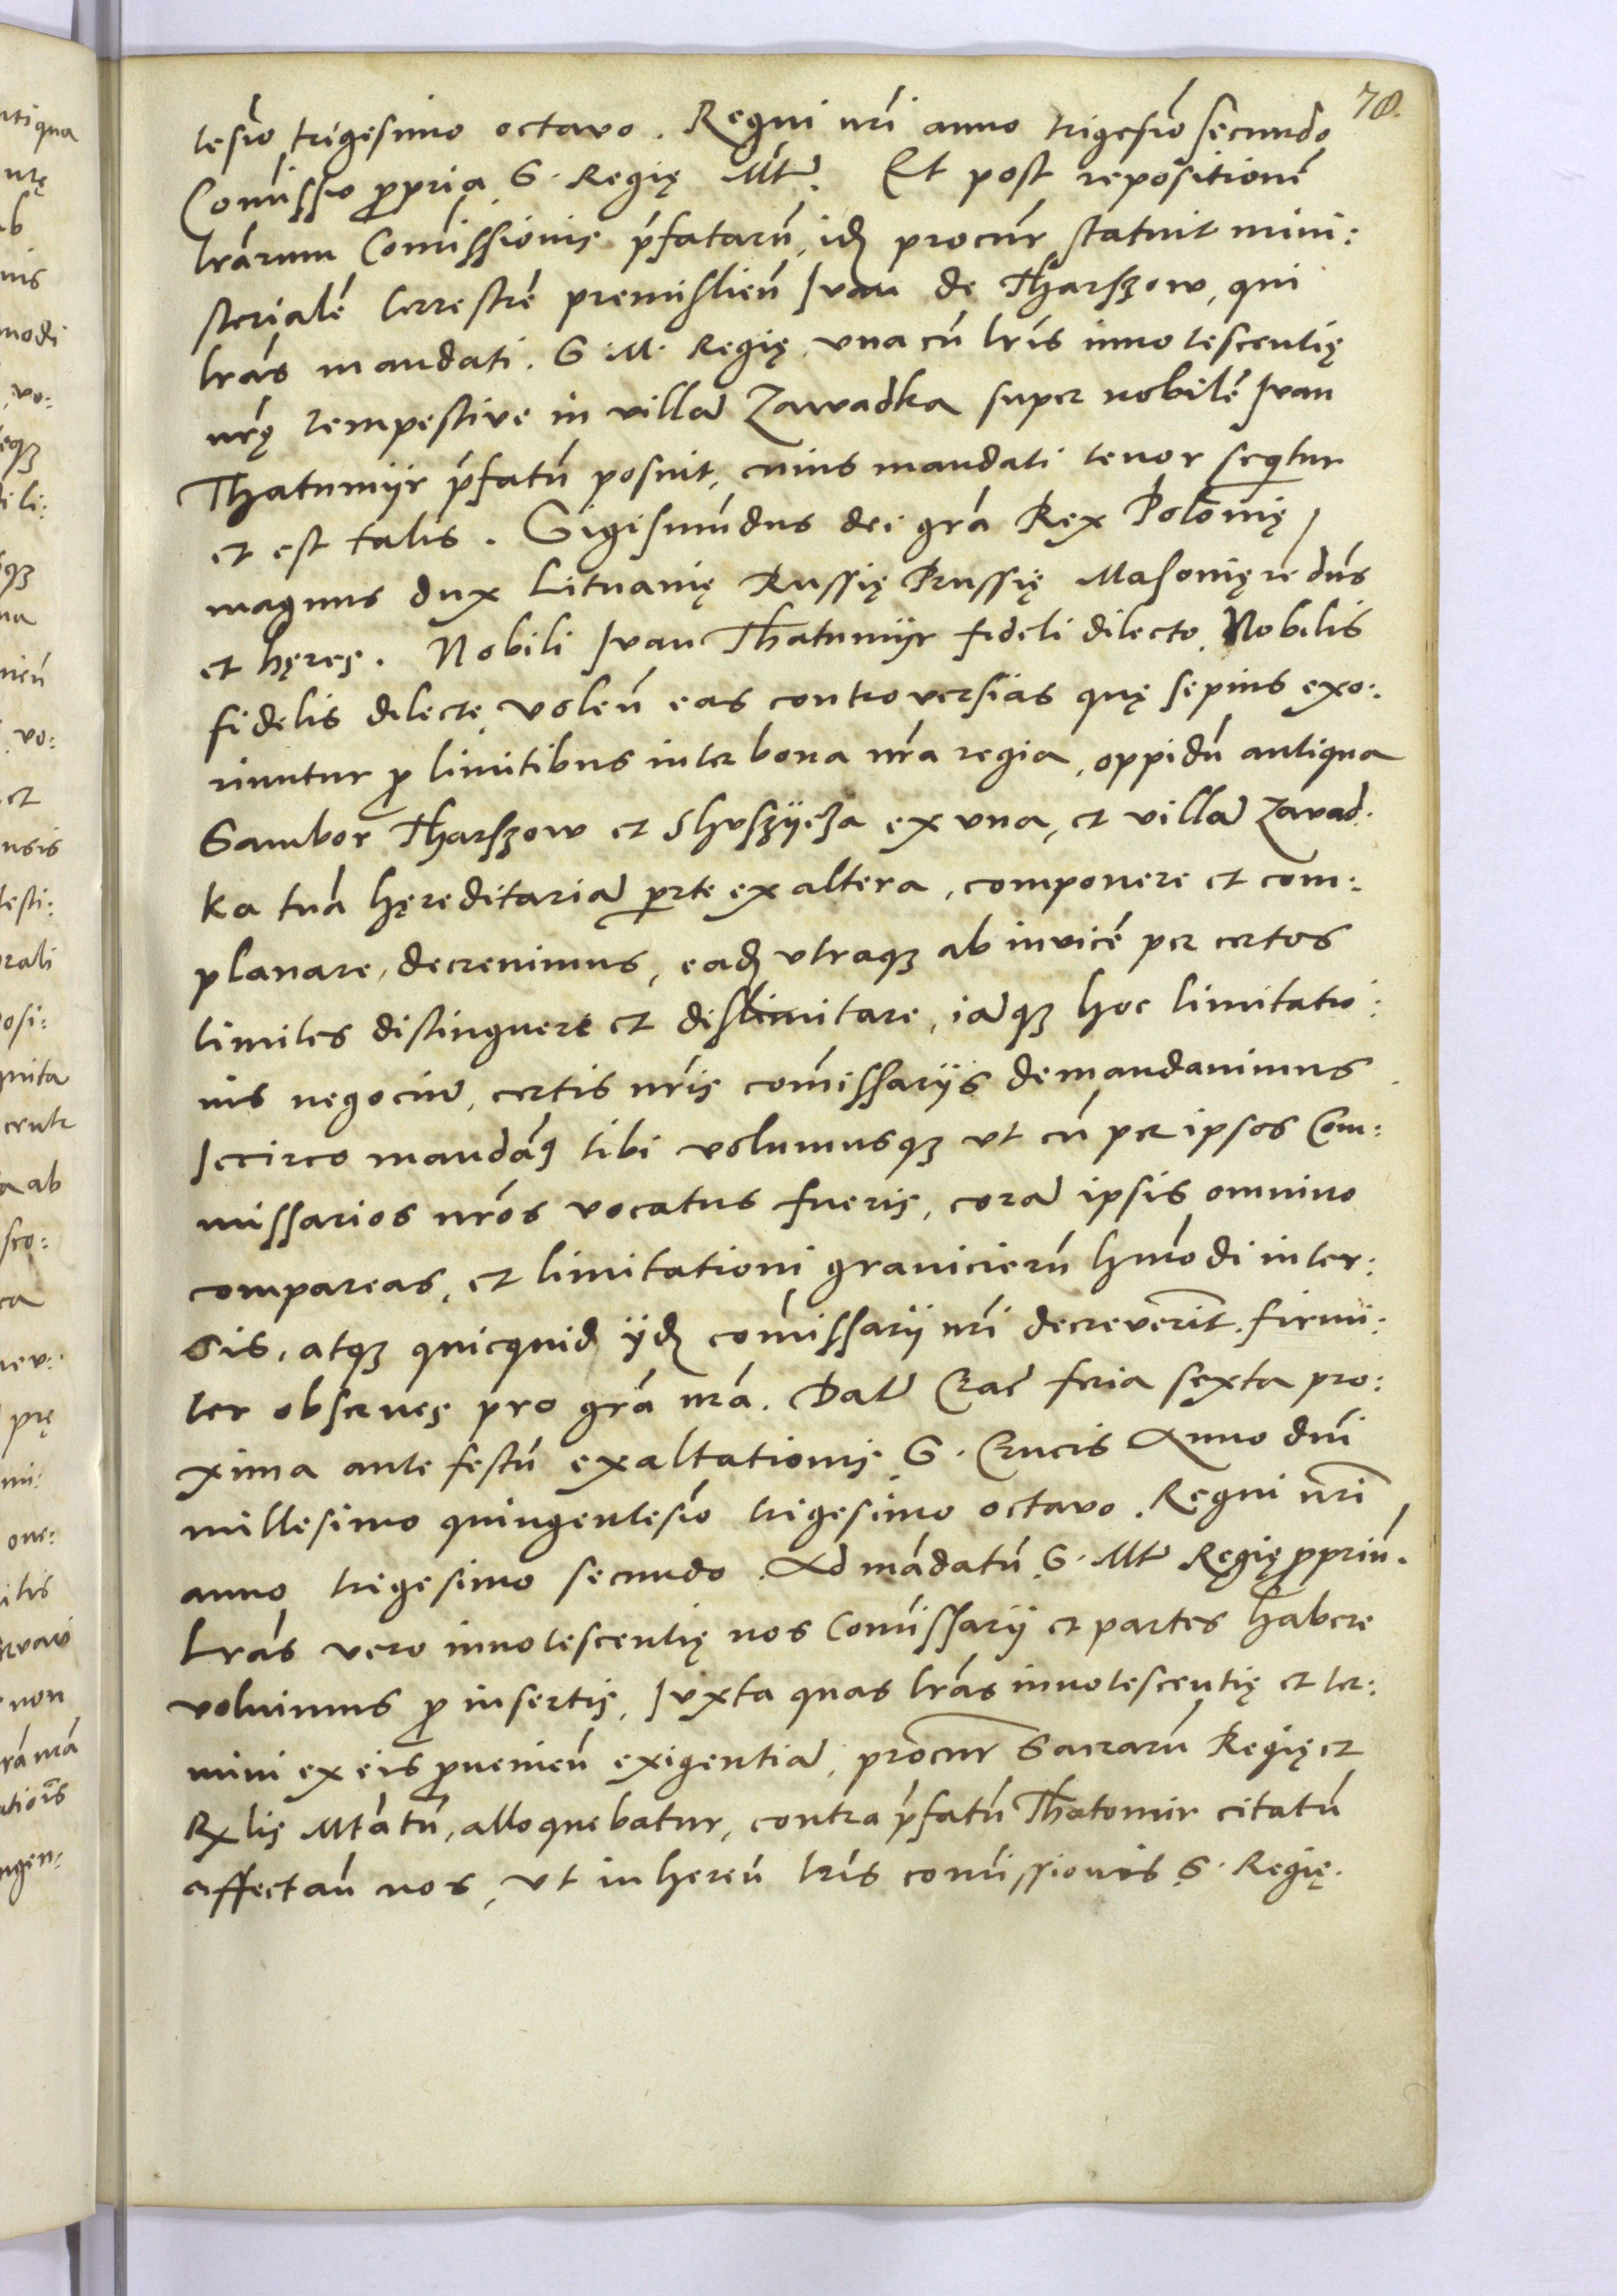 78.
tesīo trigesimo octavo. Regni nr̄i anno trigesīo secundo
Com̄issio ꝓpria S. Regię Mt̄. Et post repositionē
lr̄arum Com̄issionis p̄fatarū, idꝫ procur̄ statuit mini:
sterialē terrestrē premislien̄ Ivan de Tharszow, qui
lr̄as mandati. S. M. Regię, vna cū lr̄is innotescentię
nr̄ę tempestive in villā Zawadka super nobilē Ivan
Thatumijr p̄fatū posuit, cuius mandati tenor seq̄tur
et est talis. Sigismūdus dei gr̄a Rex Polonię,
magnus dux Lituanię Russię Prussię Masonię ꝛc dn̄s
et hęres. Nobili Ivan Thatumijr fideli dilecto. Nobilis
fidelis dilecte, volen̄ eas controversias quę sępius exo:
riuntur ꝓ limitibus inter bona nr̄a regia, oppidū antiqua
Sambor Tharszow et Shvszÿcza ex vna, et villā Zavad:
ka tuā hęreditariā ꝑte ex altera, componere et com:
planare, decrevimus, eadꝫ vtraqꝫ ab invicē per certos
limites distinguere et dislimitare, iāqꝫ hoc limitatio:
nis negociū, certis nr̄is com̄issarijs demandavimus.
Iccirco mandāꝰ tibi volumusqꝫ vt cū per ipsos Com:
missarios nr̄os vocatus fueris, corā ipsis omnino
compareas, et limitationi granicierū hmōdi inter:
sis, atqꝫ quicquid ijdꝫ com̄issarij nr̄i decreverīt, firmi:
ter observes pro gr̄a nr̄a. Datū Crac̄ feria sexta pro:
xima ante festū exaltationis S. Crucis Anno dn̄i
millesimo quingentesīo trigesimo octavo. Regni nr̄i
anno trigesimo secundo. Ad mādatū S. Mt̄ Regię ꝓpriū.
Lr̄as vero innotescentię nos Com̄issarij et partes habere
voluimus ꝓ insertis, Iuxta quas lr̄as innotescentię et ter:
mini ex eis ꝓvenien̄ exigentiā, procur̄ Sacrarū Regię et
Rx̄lis Mtātū, alloquebatur, contra p̄fatū Thatomir citatū
affectan̄ nos, vt inheren̄ lr̄is com̄issionis S. Regię.